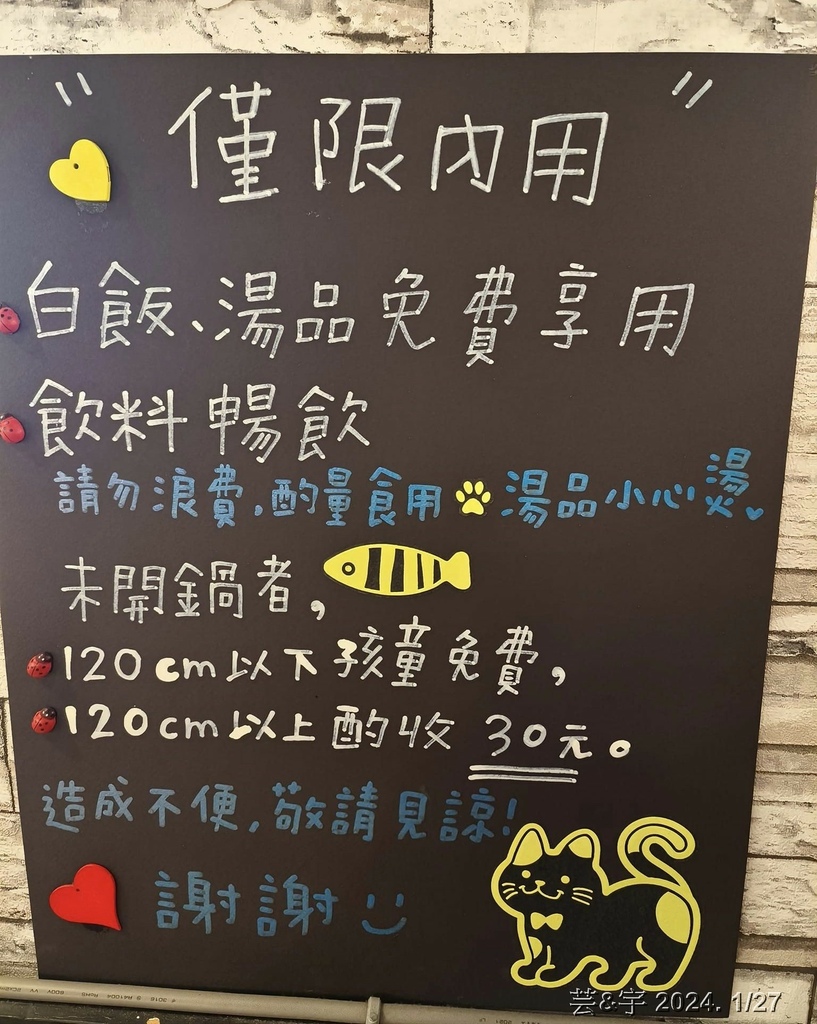 "僅限內用"
白飯、湯品免費享用
飲料暢飲
請勿浪費,酌量食用 湯品小心燙
未開鍋者,
120cm以下孩童免費,
120cm以上酌收 30元。
造成不便,敬請見諒!
謝謝
芸&宇 2024. 1/27